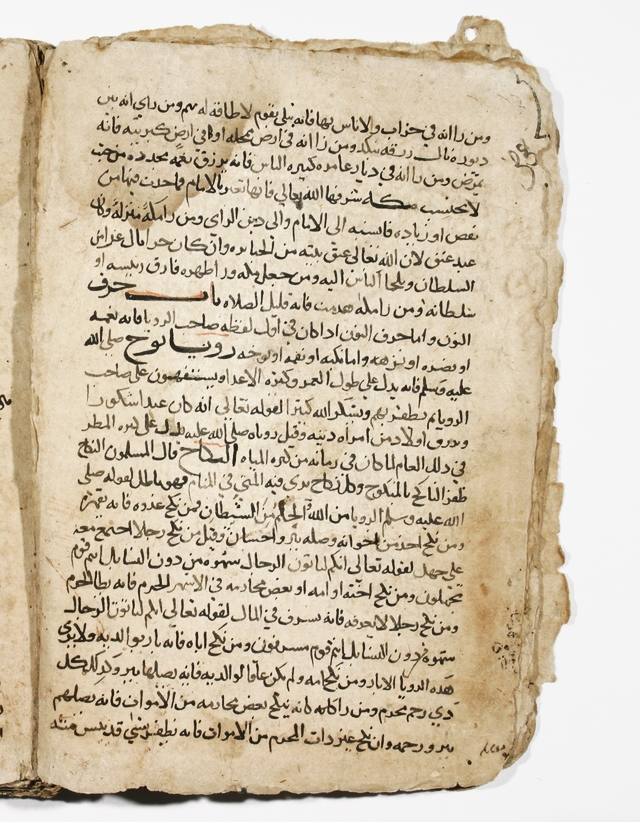 ومن راانه في خراب ولا ناس بها فانه يبلى بقوم لا طاقة له بهم ومن راى انه بنى
ومن راانه في ارض محله اوفي ارض كبيرته فانه
يمرض ومن راانه في ديار عامره كثيره الناس فانه يرزق نعمه مجدده من حيث
لا يحتسب مكه شرفها الله تعالي فانها تعبر بالامام فما حدث فيها من
نقص او زياده فانسبه الى الامام والى دين الراى ومن راى مكة منزله وكان
عبد عتق لان الله تعالي عتق بيته من الجبابره وان كان حرا نال عز امن
السلطان ويلجا الناس اليه ومن جعل مكه ورا ظهره فارق رييسه او
سلطانه ومن راى مكه هدمت فانه قليل الصلاه باب حرف
النون واما حرف النون اذا كان في اول لفظه صاحب الرويا فانه نعمه
او نضره او نزهه واما نكبه او نقمه او نوحه رويا نوح صلى الله
عليه وسلم فانه يدل على طول العمر وكثرة الاعدا وينتصرون على صاحب
الرويا ثم يظفر بهم ويشكر الله كثيرا لقوله تعالي انه كان عبدا شكورا
ويرزق اولاد من امراه دينه وقيل روياه صلى الله عليه تدل على كثره المطر
في ذلك العام لما كان في زمانه من كثره المياه النكاح قال المسلمون النكاح
ظفر الناكح بالمنكوح وكل نكاح يرى فيه المني في المنام فهو باطل لقوله صلى
الله عليه وسلم الرويا من الله والحلم من الشيطان فمن نكح عدوه فانه يقهره
ومن نكح احد من اخوانه وصله ببر واحسان وقيل من نكح رجلا اجتمع معه
على جهل لقوله تعالي ائنكم لتاتون الرجال شهوه من دون النسا بل انتم قوم
تجهلون ومن نكح اخته او امه او بعض محارمه في الاشهر الحرم فانه يطا الحرم
ومن نكح رجلا لا يعرفه فانه يسرف في المال لقوله تعالي ائنكم لتاتون الرجال
شهوه من دون النسا بل انتم قوم مسرفون ومن نكح اباه فانه بار بوالديه ولا يرى
هذه الرويا الا بار ومن نكح امه ولم يكن عاقا لوالديه فانه يصلها ببر وكذلك كل
ذي رحم محرم ومن را كانه ينكح بعض محارمه من الاموات فانه يصلهم
ببر ورحمه وان نكح غير ذات المحرم من الاموات فانه يظفر بشي قد ييس منه